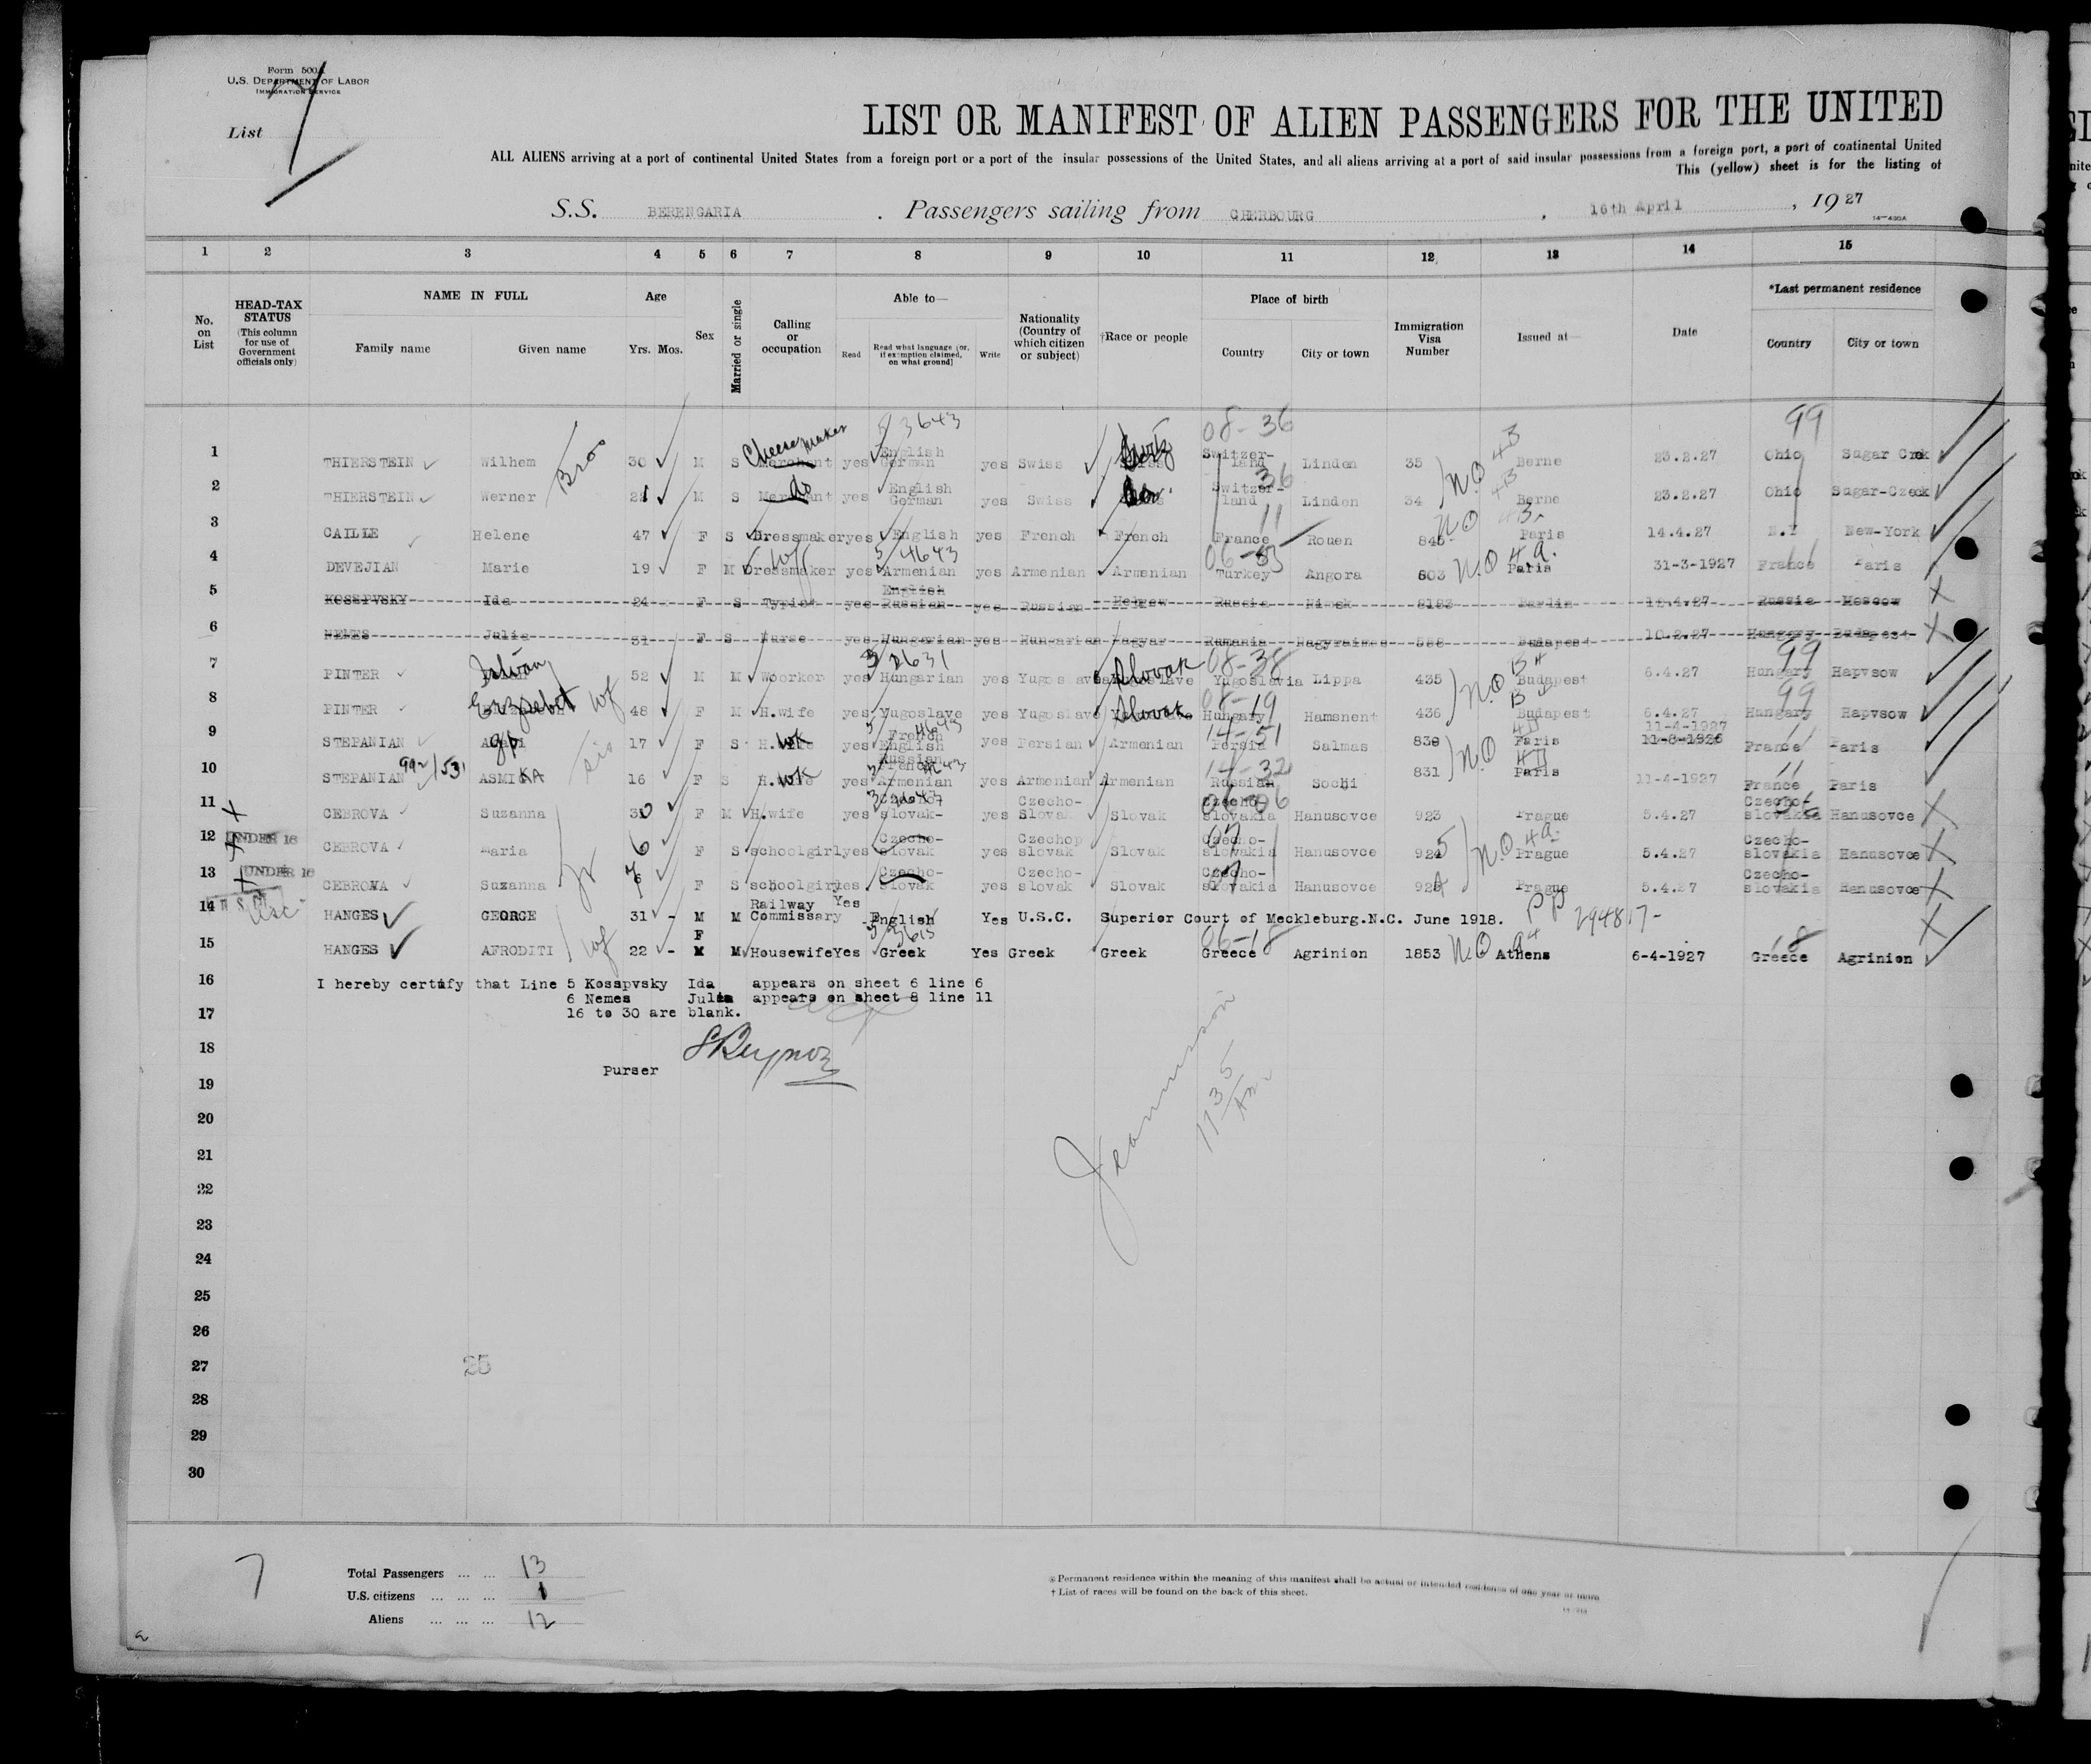 Form 500A
U.S. DEPARTMENT OF LABOR
IMMIGRATION SERVICE
List 7
LIST OR MANIFEST OF ALIEN PASSENGERS FOR THE UNITED
ALL ALIENS arriving at a port of continental United States from a foreign port or a port of the insular possessions of the United States, and all aliens arriving at a port of said insular possessions from a foreign port, a port of continental United
This (yellow) sheet is for the listing of
S.S. BERENGARIA . Passengers sailing from CHERBOURG , 16th April , 19 27
14-430A
1 2 3 4 5 6 7 8 9 10 11 12 13 14 15
No. on List
HEAD-TAX STATUS (This column for use of Government officials only)
NAME IN FULL Family name Given name
Age Yrs. Mos.
Sex
Married or single
Calling or occupation
Able to— Read Read what language [or, if exemption claimed, on what ground] Write
Nationality (Country of which citizen or subject)
†Race or people
Place of birth Country City or town
Immigration Visa Number
Issued at
Date
*Last permanent residence Country City or town
3643 08-36 99
1 THIERSTEIN Wilhem Bro 30 M S Cheese maker Merchant yes English German yes Swiss Switzerland Linden 35 N.O 43 Berne 23.2.27 Ohio Sugar Crek
2 THIERSTEIN Werner M S do Merchant yes English German yes Swiss Switzer-land 36 Linden 34 Berne 23.2.27 Ohio Sugar-Czeck
3 CAILLE Helene 47 F S Dressmaker yes English yes French French France 11 Rouen 845 NO Paris 14.4.27 N.Y New-York
4 DEVEJIAN Marie 19 F M Dressmaker wf yes 4643 Armenian yes Armenian Armenian Turkey Angora 803 N.O 4a. Paris 31-3-1927 France Paris
5 KOSSPVSKY Ida 24 F S Typist yes English Russian yes Russian Hebrew Russia Minsk 8183 Berlin 12.4.27 Russia Moscow
6 NEMES Julia 31 F S Nurse yes Hungarian yes Hungarian Magyar Rumania 556 Budapest 10.2.27 Hungary Budapest
7 PINTER Istvan 52 M M Woorker yes 2631 Hungarian yes Yugoslave Slovak 08-38 Yugoslavia Lippa 435 N.O Budapest 6.4.27 99 Hungary Hapvsow
8 PINTER Erzsebet wf 48 F M H.wife yes Yugoslave yes Yugoslave Slovak 08-19 Hungary Hamsnent 436 Budapest 6.4.27 99 Hungary Hapvsow
9 STEPANIAN 17 F S H. wk yes French English yes Persian Armenian 14-51 Persia Salmas 830 N.O Paris 11-4-1927 11-8-1926 France Paris
10 STEPANIAN ASMIKA sis 16 F S H. wk yes Russian French Armenian yes Armenian Armenian 14-32 Russian Sochi 831 Paris 11-4-1927 France Paris
11 CEBROVA Suzanna 30 F M H.wife yes Czecho-slovak- yes Czecho-Slovak Slovak Czecho-slovakia Hanusovce 923 Prague 5.4.27 Czecho-slovakia Hanusovce
12 UNDER 16 CEBROVA Maria 6 F S schoolgirl yes Czecho-slovak yes Czechop slovak Slovak Czecho-slovakia Hanusovce 925 N.O 4a. Prague 5.4.27 Czecho-slovakia Hanusovce
13 UNDER 16 CEBROVA Suzanna 7 F S schoolgirl yes Czecho-slovak yes Czecho-slovak Slovak Czecho-slovakia Hanusovce 924 Prague 5.4.27 Czecho-slovakia Hanusovce
14 USC HANGES GEORGE 31 - M M Railway Commissary Yes English Yes U.S.C. Superior Court of Meckleburg.N.C. June 1918. PP 294817-
15 HANGES AFRODITI wf 22 - F M Housewife Yes 3615 Greek Yes Greek Greek 06-18 Greece Agrinion 1853 N.O Athens 6-4-1927 Greece Agrinion
16 I hereby certify that Line 5 Kosspvsky Ida appears on sheet 6 line 6
6 Nemes Julia appears on sheet 8 line 11
17 16 to 30 are blank.
18
Purser
19
20
21
22
23
24
25
26
27 25
28
29
30
7
Total Passengers ... ... 13
U.S. citizens ... ... ... 1
Aliens ... ... ... 12
*Permanent residence within the meaning of this manifest shall be actual or intended residence of one year or more
† List of races will be found on the back of this sheet.